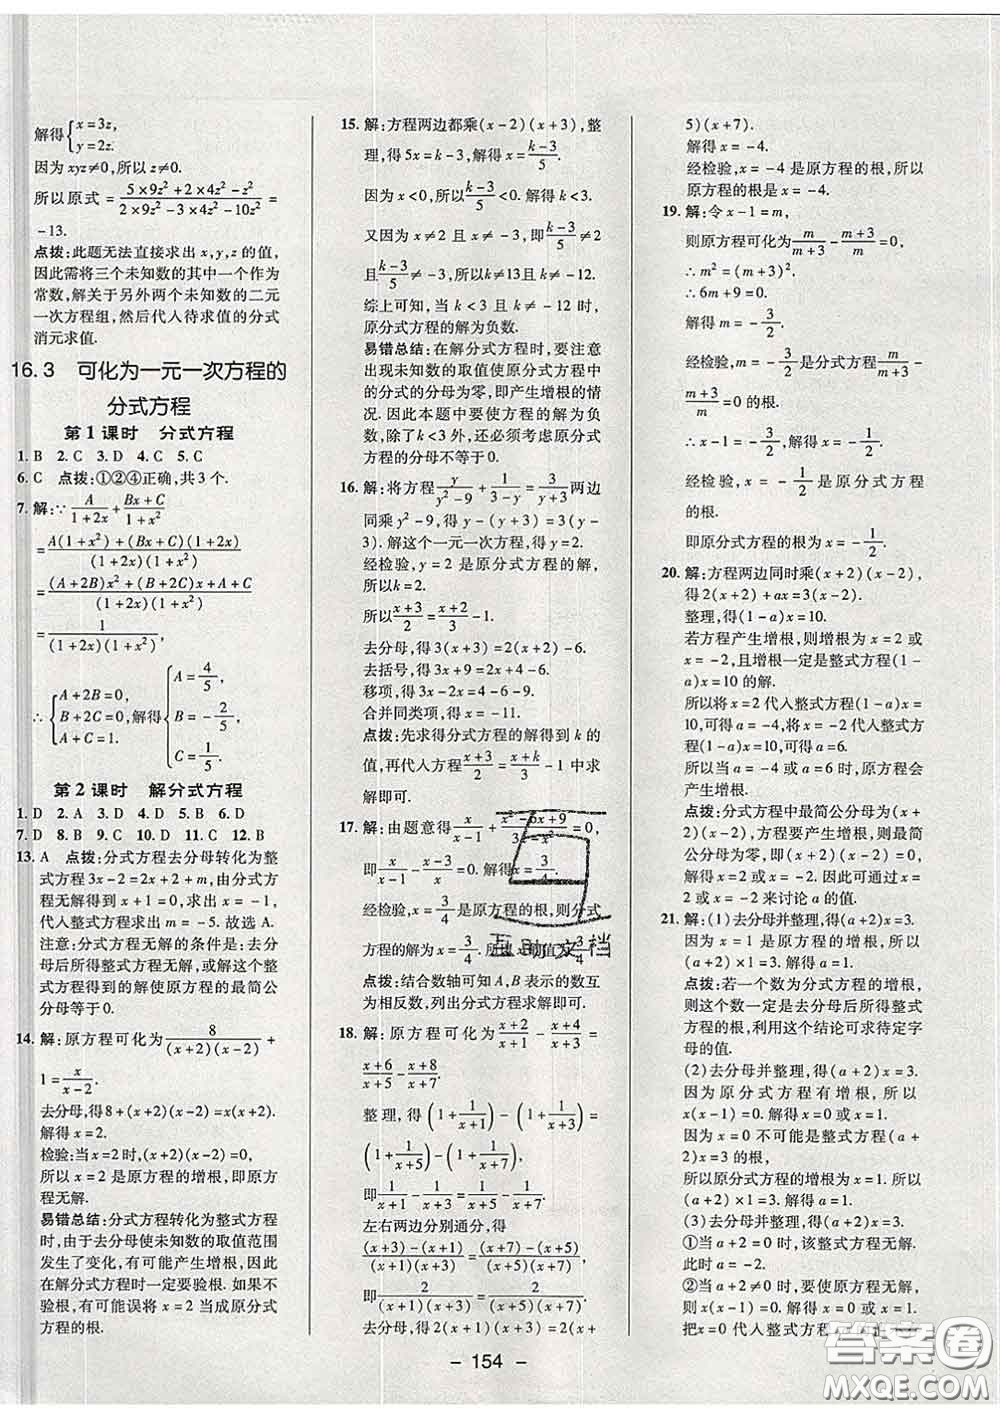 解得{x=3z,
y=2z.
因为 xyz≠0,所以 z≠0.
所以原式 = (5×9z²+2×4z²-z²)/(2×9z²-3×4z²-10z²) =
-13.
点拨:此题无法直接求出 x,y,z 的值,
因此需将三个未知数的其中一个作为
常数,解关于另外两个未知数的二元
一次方程组,然后代人待求值的分式
消元求值.
16.3 可化为一元一次方程的
分式方程
第 1 课时 分式方程
1. B 2. C 3. D 4. C 5. C
6. C 点拨:①②④正确,共 3 个.
7. 解:∵ A/(1+2x) + (Bx+C)/(1+x²)
= (A(1+x²)+(Bx+C)(1+2x))/((1+2x)(1+x²))
= ((A+2B)x²+(B+2C)x+A+C)/((1+2x)(1+x²))
= 1/((1+2x)(1+x²)),
∴ {A+2B=0, B+2C=0, A+C=1. 解得 {A=4/5, B=-2/5, C=1/5.
第 2 课时 解分式方程
1. D 2. D 3. D 4. D 5. B 6. A
7. D 8. B 9. C 10. D 11. C 12. B
13. A 点拨:分式方程去分母转化为整
式方程 3x-2=2x+2+m,由分式方
程无解得到 x+1=0,即 x=-1,
代人整式方程求出 m=-5.故选 A.
注意:分式方程无解的条件是:去分
母后所得整式方程无解或解这个整
式方程得到的解使原方程的最简公
分母等于 0.
14. 解:原方程可化为 8/((x+2)(x-2)) +
1 = x/(x-2).
去分母,得 8+(x+2)(x-2)=x(x+2).
解得 x=2.
检验:当 x=2 时,(x+2)(x-2)=0,
所以 x=2 是原方程的增根,即原方
程无解.
易错总结:分式方程转化为整式方程
时,由于去分母使未知数的取值范围
发生了变化,有可能产生增根,因此
在解分式方程时一定要验根.如果不
验根,有可能误将 x=2 当成原分式
方程的根.
15. 解:方程两边都乘(x-2)(x+3),整
理,得 5x=k-3,解得 x=(k-3)/5.
因为 x<0,所以 (k-3)/5<0.解得 k<3.
又因为 x≠2 且 x≠-3,即 (k-3)/5≠2
且 (k-3)/5≠-3,所以 k≠13且 k≠-12.
综上可知,当 k<3 且 k≠-12 时,
原分式方程的解为负数.
易错总结:在解分式方程时,要注意
出现未知数的取值使原分式方程中
的分式的分母为零,即产生增根的情
况.因此本题中要使方程的解为负
数,除了 k<3 外,还必须考虑原分式
方程的分母不等于 0.
16. 解:将方程 y/(y²-9) + 1/(3-y) = 3/(y+3) 两边
同乘 y²-9,得 y-(y+3)=3(y-
3).解这个一元一次方程,得 y=2.
经检验,y=2 是原分式方程的解,
所以 k=2.
所以 (x+3)/2 = (x+2)/3 - 1.
去分母,得 3(x+3)=2(x+2)-6.
去括号,得 3x+9=2x+4-6.
移项,得 3x-2x=4-6-9.
合并同类项,得 x=-11.
点拨:先求得分式方程的解得到 k 的
值,再代人方程 (x+3)/k = (x+2)/3 - 1 中求
解即可.
17. 解:由题意得 x/(x-1) + (x²-6x+9)/(3x-x²) = 0,
即 x/(x-1) - (x-3)/x = 0.解得 x=3/4.
经检验,x=3/4 是原方程的根,则分式
方程的解为 x=3/4.所以 x 的值为 3/4.
点拨:结合数轴可知 A,B 表示的数互
为相反数,列出分式方程求解即可.
互助文档
18. 解:原方程可化为 (x+2)/(x+1) - (x+4)/(x+3) =
(x+6)/(x+5) - (x+8)/(x+7).
整理,得 (1+1/(x+1)) - (1+1/(x+3)) =
(1+1/(x+5)) - (1+1/(x+7)),
即 1/(x+1) - 1/(x+3) = 1/(x+5) - 1/(x+7).
左右两边分别通分,得
((x+3)-(x+1))/((x+1)(x+3)) = ((x+7)-(x+5))/((x+5)(x+7)),
即 2/((x+1)(x+3)) = 2/((x+5)(x+7)).
去分母,得 2(x+1)(x+3)=2(x+
5)(x+7).
解得 x=-4.
经检验,x=-4 是原方程的根,所以
原方程的根是 x=-4.
19. 解:令 x-1=m,
则原方程可化为 m/(m+3) - (m+3)/m = 0,
∴ m²=(m+3)².
∴ 6m+9=0.
解得 m=-3/2.
经检验,m=-3/2 是分式方程 m/(m+3) -
(m+3)/m = 0 的根.
∴ x-1=-3/2.解得 x=-1/2.
经检验,x=-1/2 是原分式方程
的根.
即原分式方程的根为 x=-1/2.
20. 解:方程两边同时乘(x+2)(x-2),
得 2(x+2)+ax=3(x-2).
整理,得(1-a)x=10.
若方程产生增根,则增根为 x=2 或
x=-2,且增根一定是整式方程(1-
a)x=10 的解.
所以将 x=2 代人整式方程(1-a)x=
10,可得 a=-4,将 x=-2 代人整式方
程(1-a)x=10,可得 a=6.
所以当 a=-4 或 a=6 时,原方程会
产生增根.
点拨:分式方程中最简公分母为(x+
2)(x-2),方程要产生增根,则最简
公分母为零,即 x=±2.因此可通过
x=2 或 x=-2 来讨论 a 的值.
21. 解:(1)去分母并整理,得(a+2)x=3.
因为 x=1 是原方程的增根,所以
(a+2)×1=3.解得 a=1.
点拨:若一个数为分式方程的增根,
则这个数一定是去分母后所得整式
方程的根,利用这个结论可求待定字
母的值.
(2)去分母并整理,得(a+2)x=3.
因为原分式方程有增根,所以
x(x-1)=0.解得 x=0 或 x=1.
因为 x=0 不可能是整式方程(a+
2)x=3 的根,
所以原分式方程的增根为 x=1.所以
(a+2)×1=3.解得 a=1.
(3)去分母并整理,得(a+2)x=3.
①当 a+2=0 时,该整式方程无解.
此时 a=-2.
②当 a+2≠0 时,要使原方程无解,
则 x(x-1)=0.解得 x=0 或 x=1.
把 x=0 代人整式方程,
- 154 -
答案圈
MXQE.COM